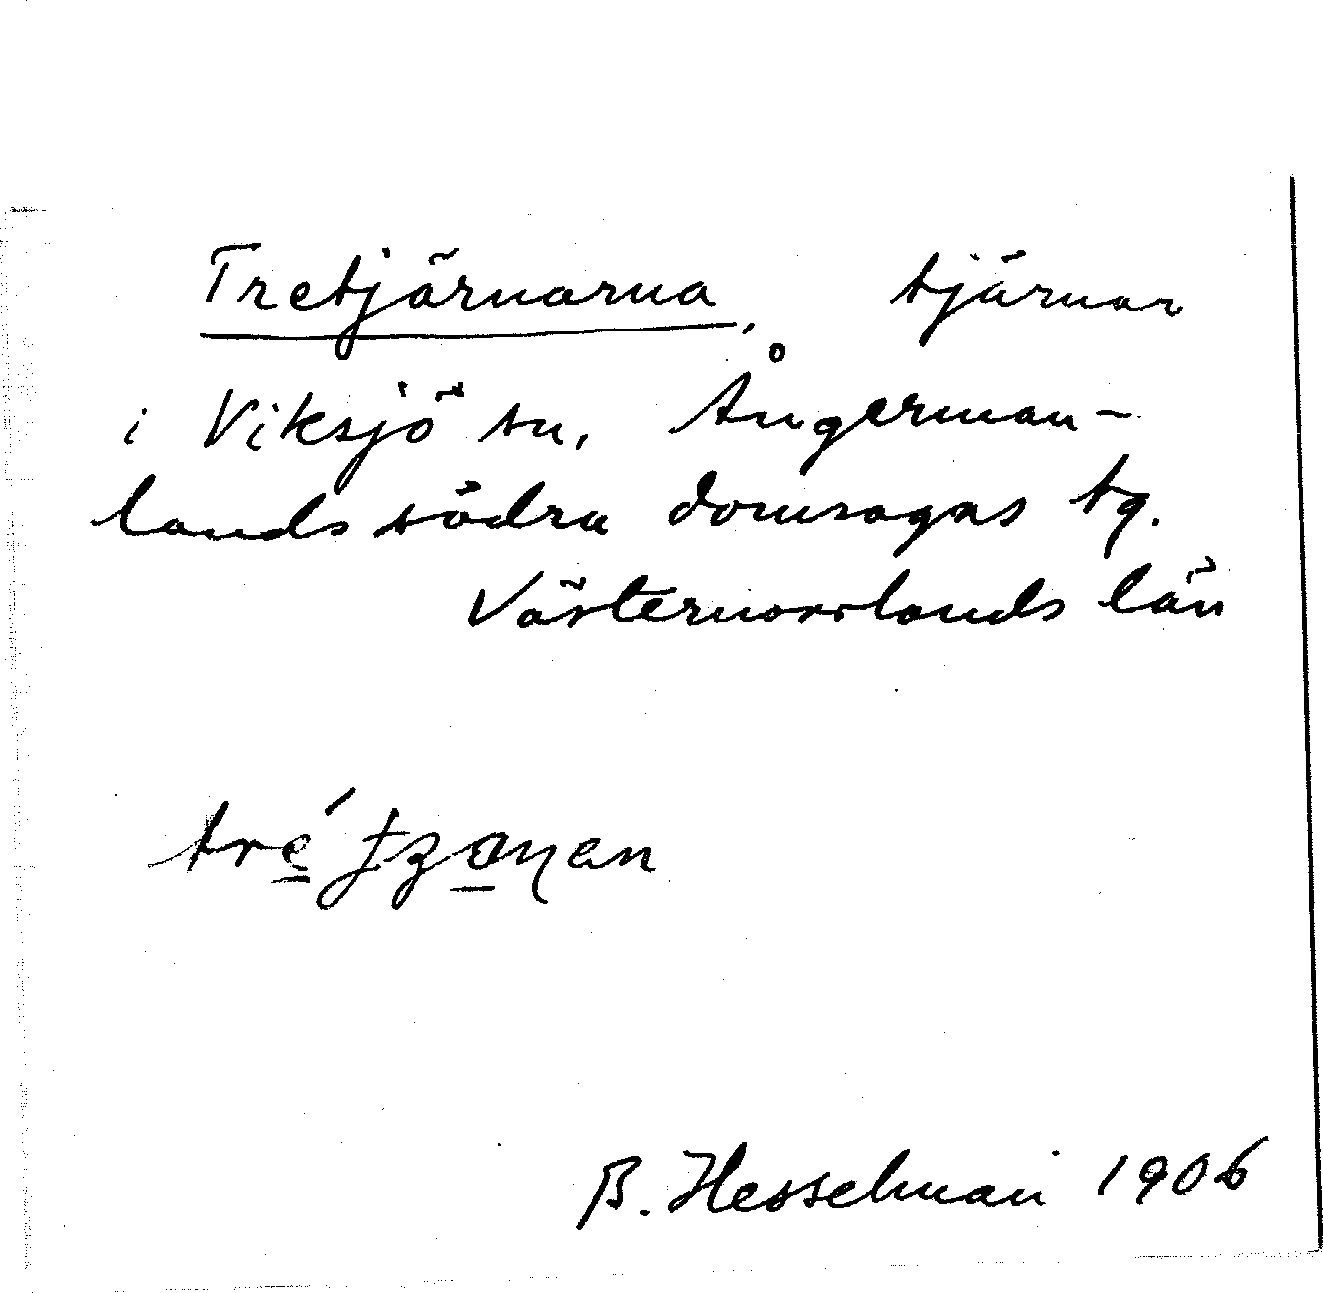 Tretjärnarna, tjärnar
i Viksjö sn, Ångerman-
lands södra domsagas tg.
Västernorrlands län
B. Hesselman 1906